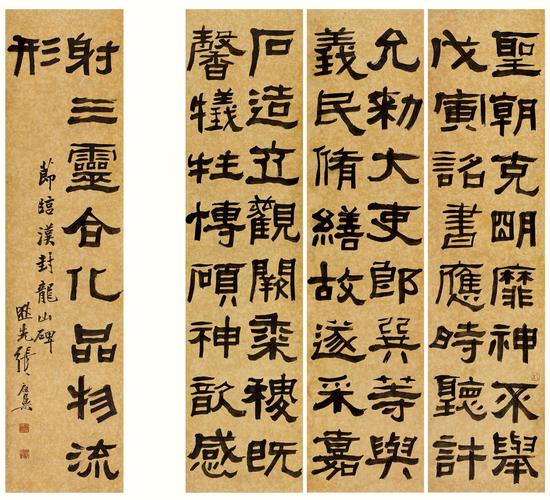 聖朝克明靡神不舉
戊寅詔書應時聽許
允勑大吏郎巽等與
義民脩繕故遂采嘉
石造立觀闕黍稷既
馨犧牲愽碩神歆感
射三靈合化品物流
形
節臨漢封龍山碑